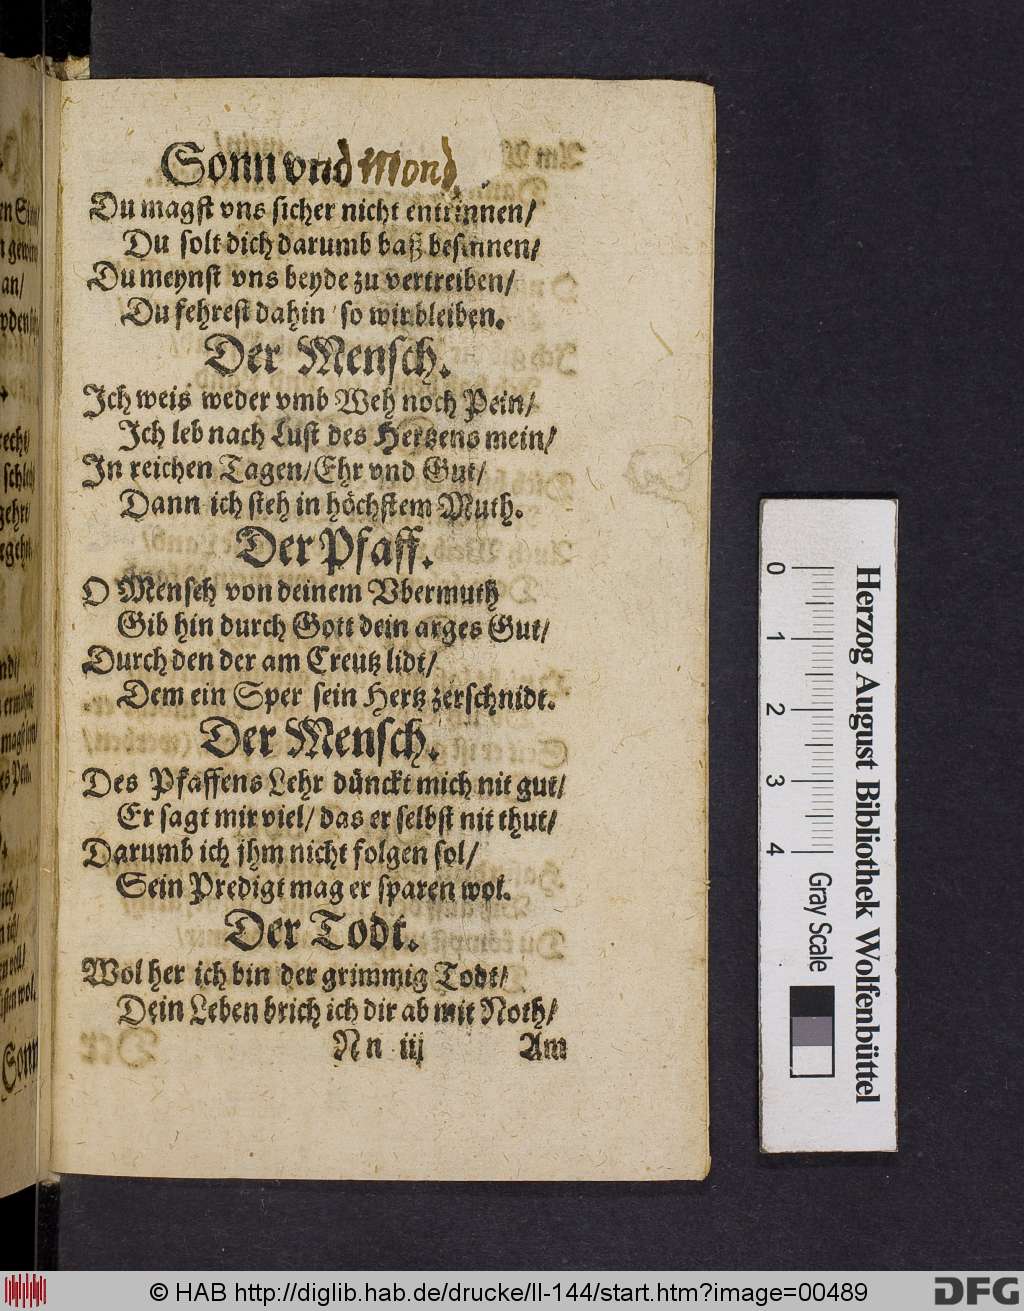 Sonn vnd Mond.
Du magst vns sicher nicht entrinnen/
Du solt dich darumb baß besinnen/
Du meynst vns beyde zu vertreiben/
Du fehrest dahin so wir bleiben.
Der Mensch.
Ich weis weder vmb Weh noch Pein/
Ich leb nach Lust des Hertzens mein/
In reichen Tagen/Ehr vnd Gut/
Dann ich steh in höchstem Muth.
Der Pfaff.
O Mensch von deinem Vbermuth
Gib hin durch Gott dein arges Gut/
Durch den der am Creutz lidt/
Dem ein Sper sein Hertz zerschnidt.
Der Mensch.
Des Pfaffens Lehr dünckt mich nit gut/
Er sagt mir viel/ das er selbst nit thut/
Darumb ich jhm nicht folgen sol/
Sein Predigt mag er sparen wol.
Der Todt.
Wol her ich bin der grimmig Todt/
Dein Leben brich ich dir ab mit Noth/
Nn iij Am
an/
Sonn
0 1 2 3 4
Gray Scale
Herzog August Bibliothek Wolfenbüttel
© HAB http://diglib.hab.de/drucke/ll-144/start.htm?image=00489
DFG